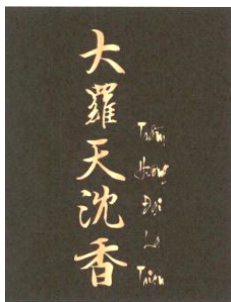 大羅天沈香
Trầm
Hương
Đại
La
Thiên